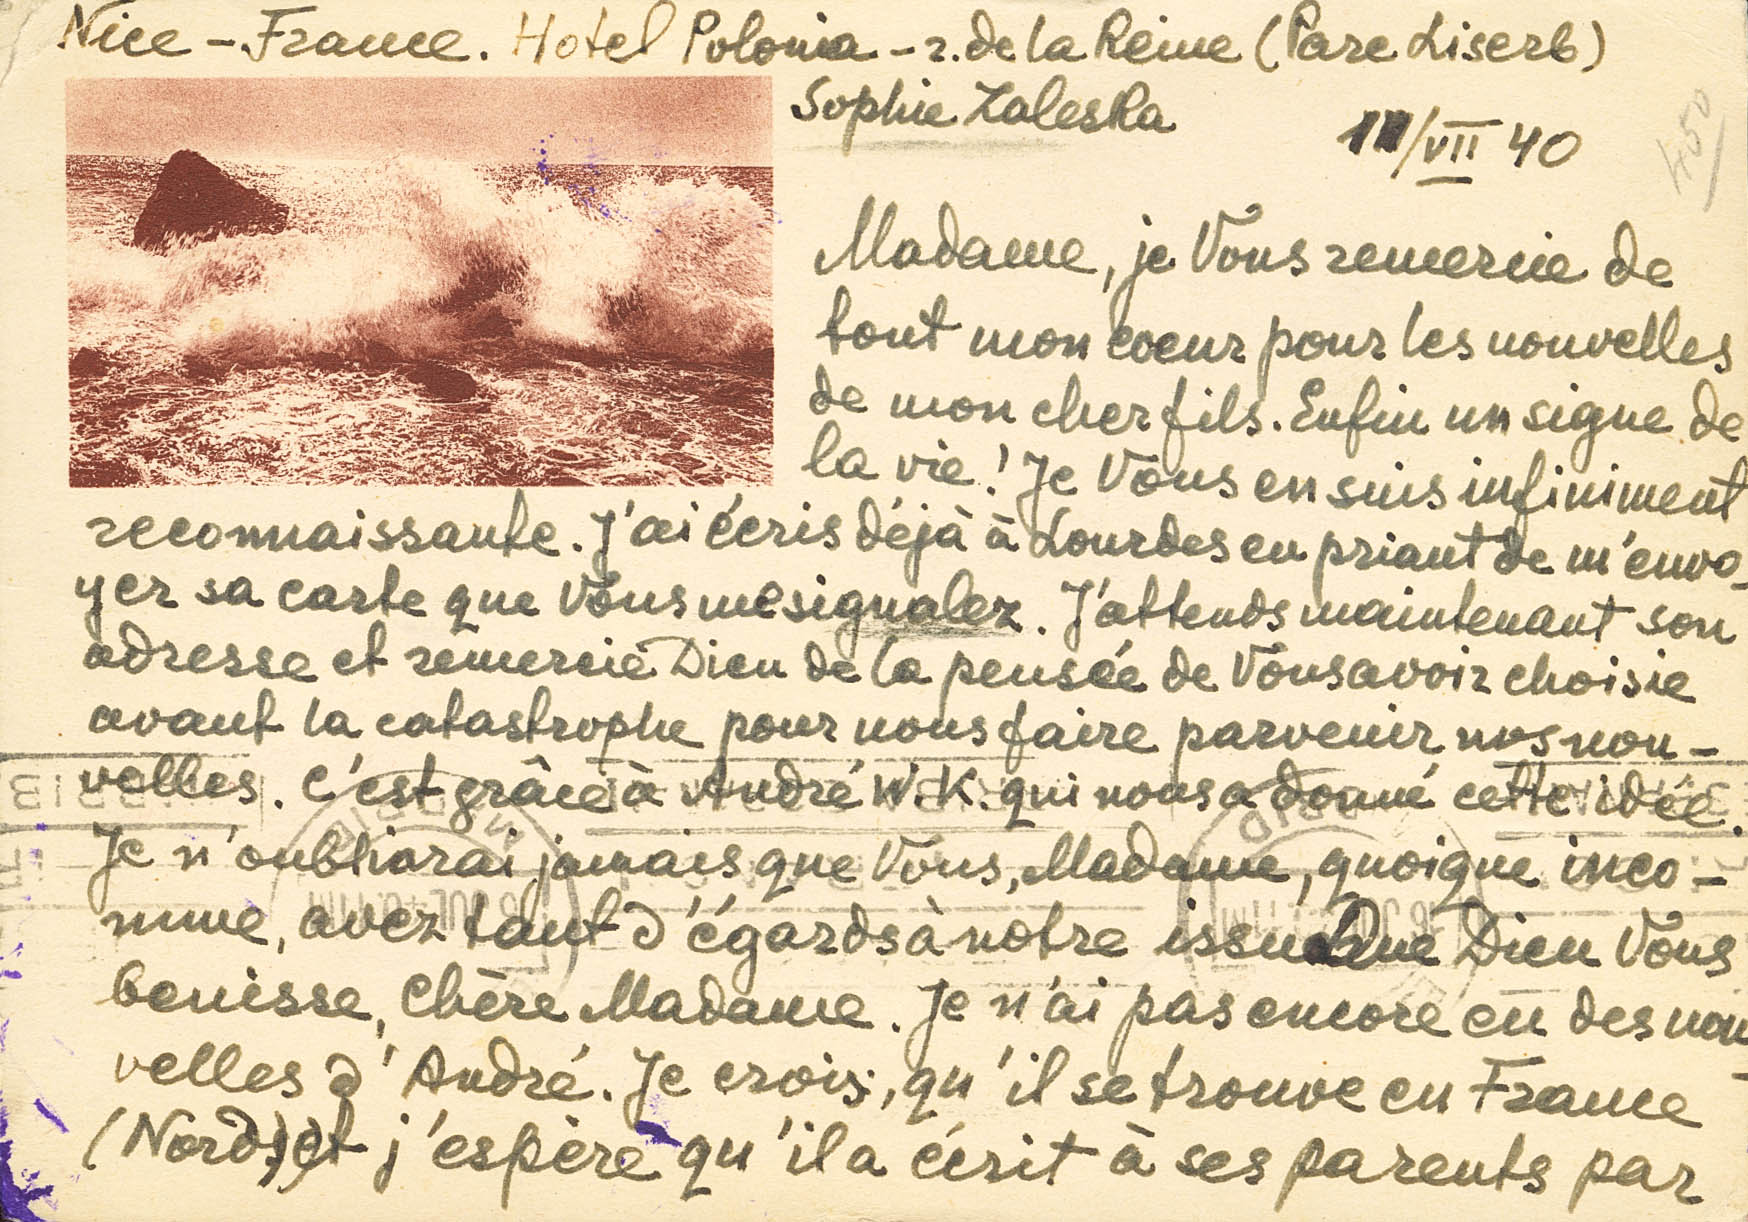 Nice - France. Hotel Polonia - r. de la Reine (Parc Liserb)
Sophie Zaleska
/VII 40
450
Madame, je Vous remercie de
tout mon coeur pour les nouvelles
de mon cher fils. Enfin un signe de
la vie! Je Vous en suis infiniment
reconnaissante. J'ai écris déjà à Lourdes en priant de m'envo-
yer sa carte que Vous me signalez. J'attends maintenant son
adresse et remercie Dieu de la pensée de Vous avoir choisie
avant la catastrophe pour nous faire parvenir nos nou-
velles. C'est grâce à André W. K. qui nous a donné cette idée.
Je n'oubliarai jamais que Vous, Madame, quoique inco-
nnue, avez tant d'égards à notre issu. Que Dieu Vous
benisse, Chère Madame. Je n'ai pas encore eu des nou-
velles d'André. Je crois, qu'il se trouve en France
(Nord) et j'espère qu'il a écrit à ses parents par